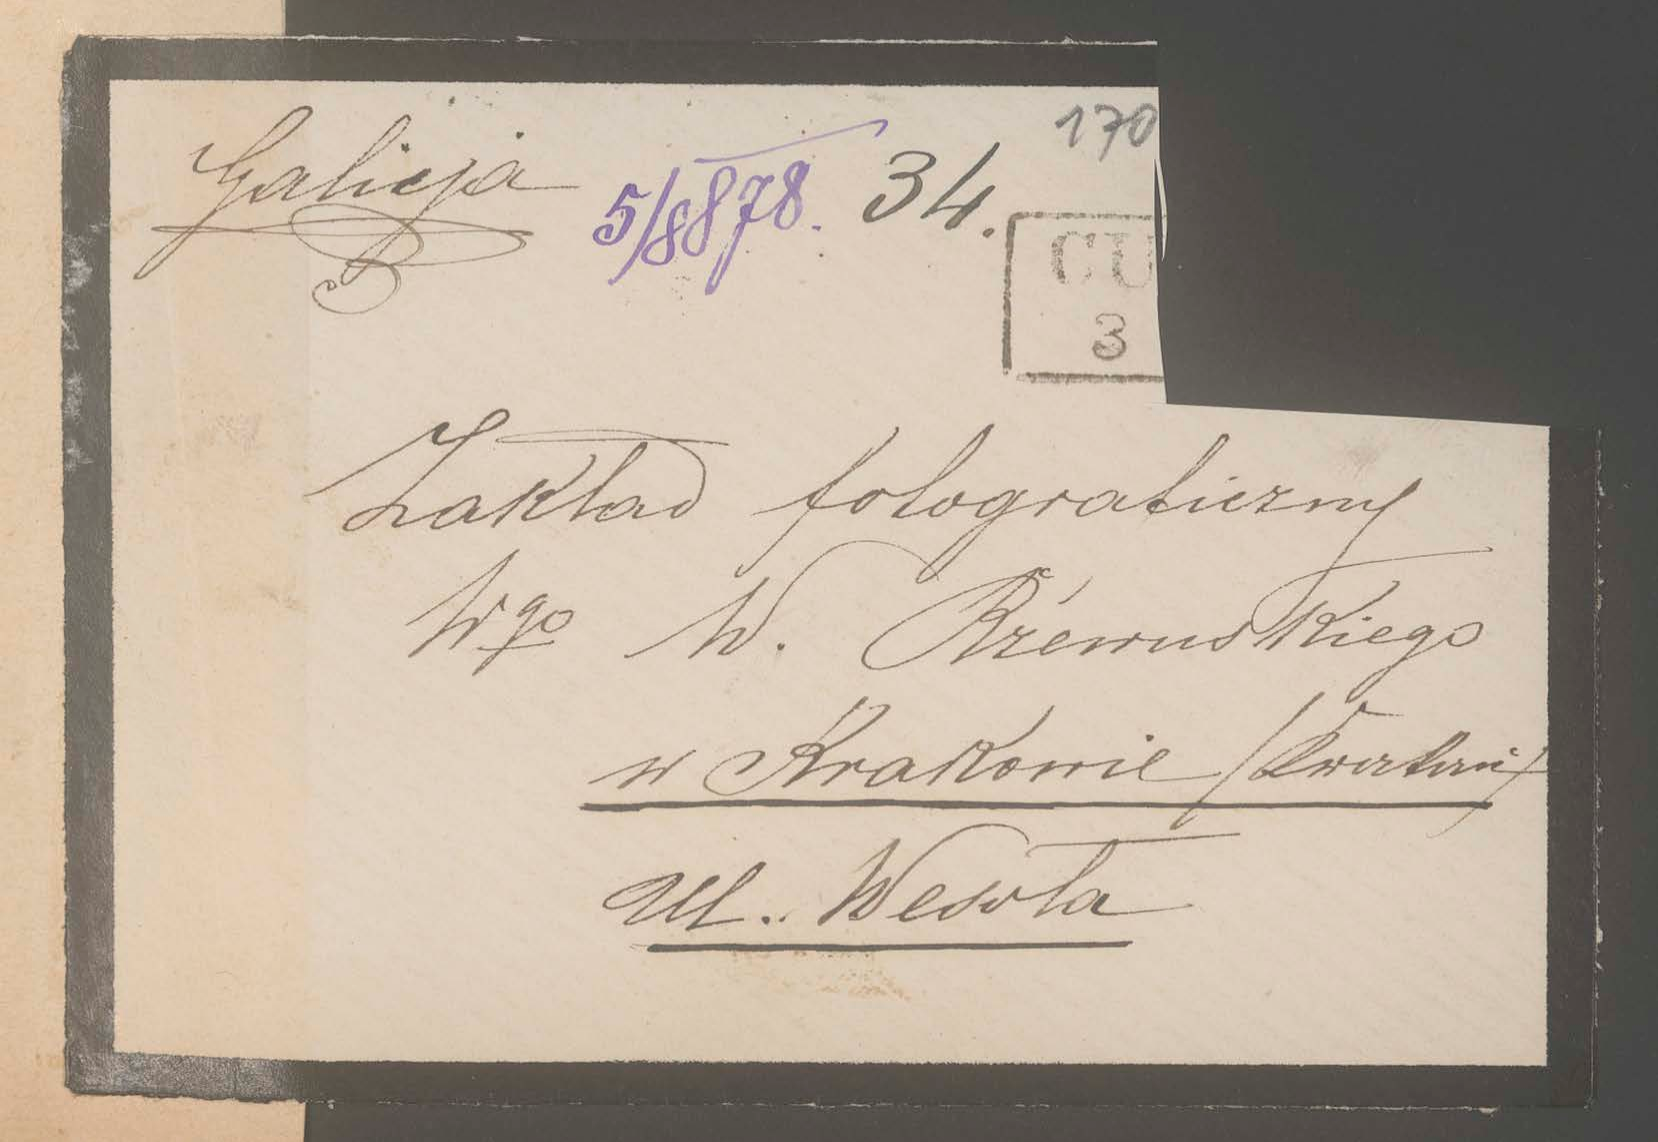 Galicja 5/8 878. 34. 170
CU
3
Zakład fotograficzny
Wgo W. Rzewuskiego
w Krakowie
Ul. Wesoła